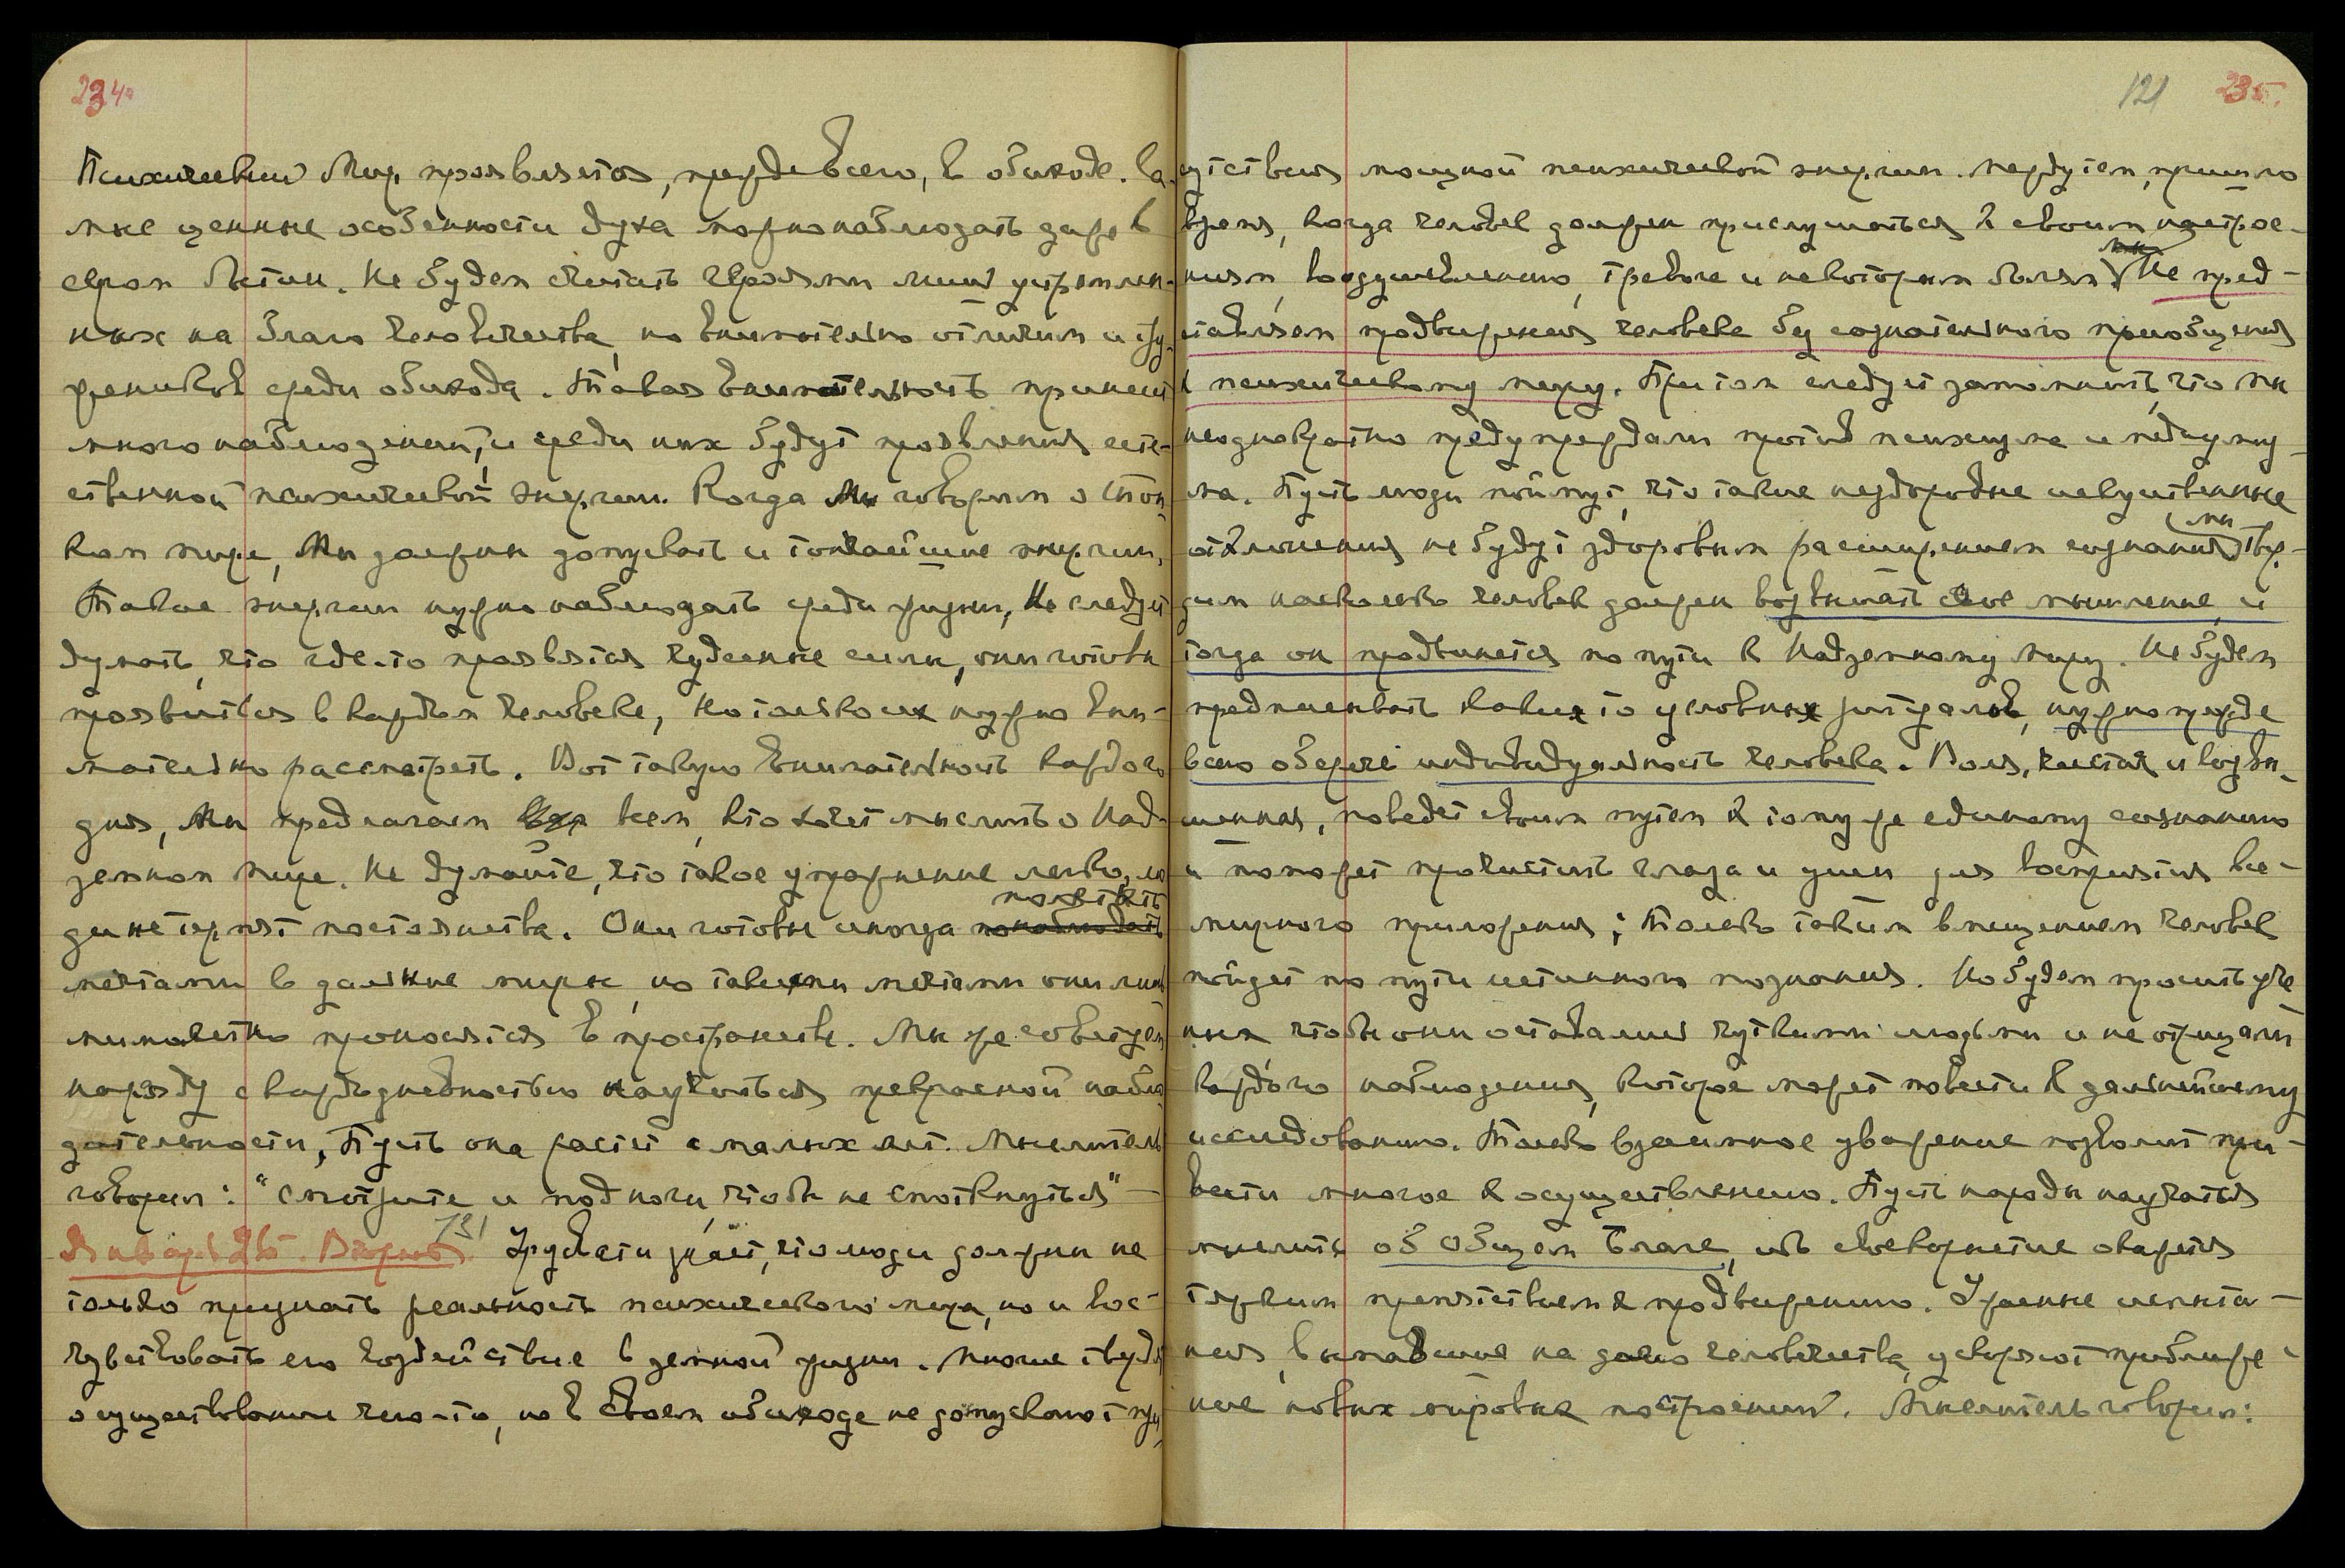 234.
Психический Мир проявляется, прежде всего, в обиходе. Са-
мые ценные особенности духа можно наблюдать даже в
серой жизни. Не будем считать героями лишь устремлен-
ных на благо человечества, но внимательно отличим и тру-
жеников среди обихода. Такая внимательность принесет
много наблюдений, и среди них будут проявления есте-
ственной психической энергии. Когда Мы говорим о Тон-
ком мире, Мы должны допускать и тончайшие энергии.
Такие энергии нужно наблюдать среди жизни, Не следует
думать, что где-то проявятся чудесные силы, они готовы
проявиться в каждом человеке, Но только их нужно вни-
мательно рассмотреть. Вот такую внимательность каждого
дня, Мы предлагаем всем, кто хочет мыслить о Над-
земном мире. Не думайте, что такое упражнение легко, лю-
ди не терпят постоянства. Они готовы иногда полететь
мечтами в дальние миры, но такими мечтами они лишь
мимолетно проносятся в пространстве. Мы же советуем
наряду с каждодневностью научиться прекрасной наблю-
дательности, Пусть она растет с малых лет. Мыслитель
говорил: "смотрите и под ноги, чтобы не споткнуться" —
731
Январь 25. Вторник. Урусвати знает, что люди должны не
только признать реальность психического мира, но и вос-
чувствовать его воздействие в земной жизни. Многие твердят
о существовании чего-то, но в своем обиходе не допускают при-
121 235.
сутствия мощной психической энергии. Между тем, пришло
время, когда человек должен прислушаться к своим настрое-
ниям, воодушевлению, тревоге и некоторым болям. Мы Не пред-
ставляем продвижения человека без сознательного приобщения
к психическому миру. При том следует запомнить, что Мы
неоднократно предупреждали против психизма и медиумиз-
ма. Пусть люди поймут, что такие нездоровые искусственные
отклонения не будут здоровым расширением сознания. Мы твер-
дим насколько человек должен возвышать свое мышление, и
тогда он продвинется по пути к Надземному миру. Не будем
предписывать каких то условных ритуалов, нужно прежде
всего оберечь индивидуальность человека. Воля, чистая и возвы-
шенная, поведет своим путем к тому же единому сознанию
и поможет прочистить глаза и уши для восприятия все-
мирного приложения; Только таким вмещением человек
пойдет по пути истинного познания. Но будем просить уче-
ных чтобы они оставались чуткими людьми и не отрицали
каждого наблюдения, которое может повести к дальнейшему
исследованию. Только взаимное уважение позволит при-
вести многое к осуществлению. Пусть народы научатся
мыслить об Общем Благе, ибо своекорыстие окажется
тяжким препятствием к продвижению. Грозные испыта-
ния, выпавшие на долю человечества, ускоряют приближе-
ние новых мировых построений. Мыслитель говорил: